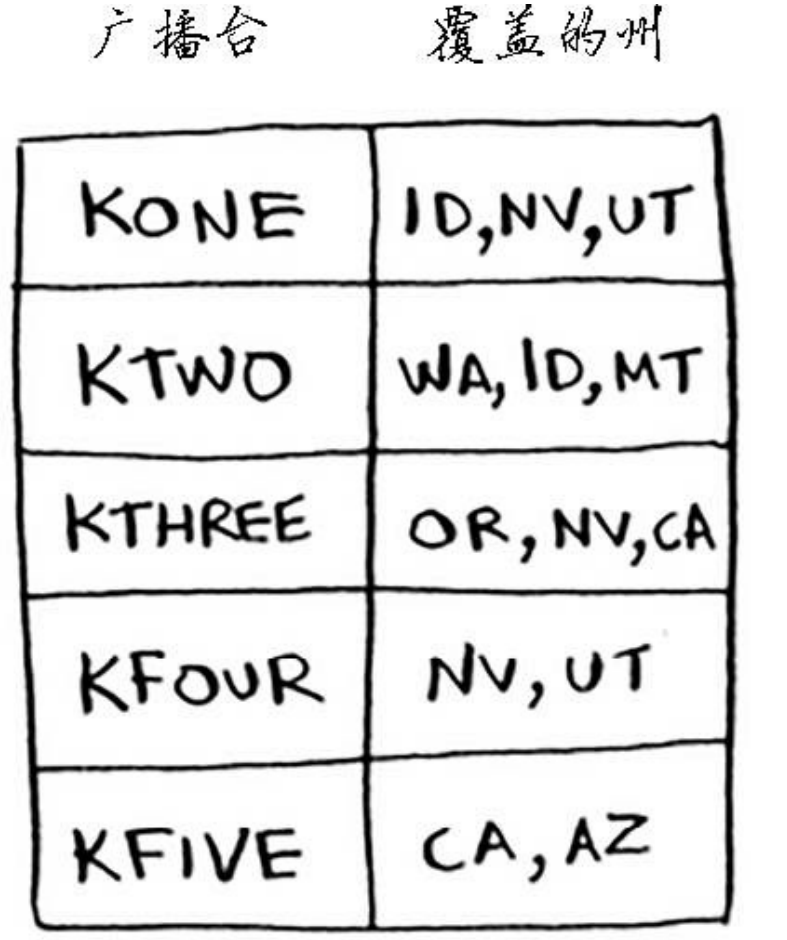 广播台 覆盖的州
KONE ID,NV,UT
KTWO WA,ID,MT
KTHREE OR,NV,CA
KFOUR NV,UT
KFIVE CA,AZ